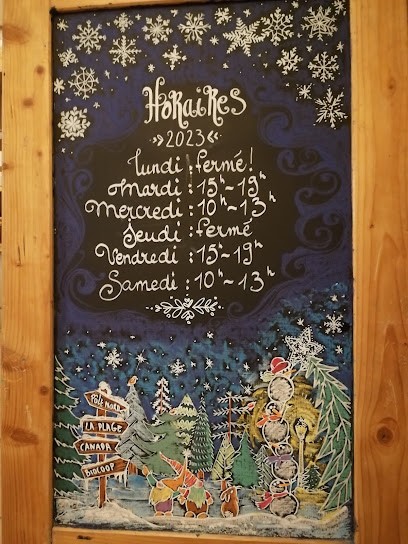 HoRaiRes
2023
lundi : fermé !
Mardi : 15h-19h
Mercredi : 10h-13h
Jeudi : fermé
Vendredi : 15h-19h
Samedi : 10h-13h
PôLE NORD
LA PLAGE
CANADA
BIOCOOP